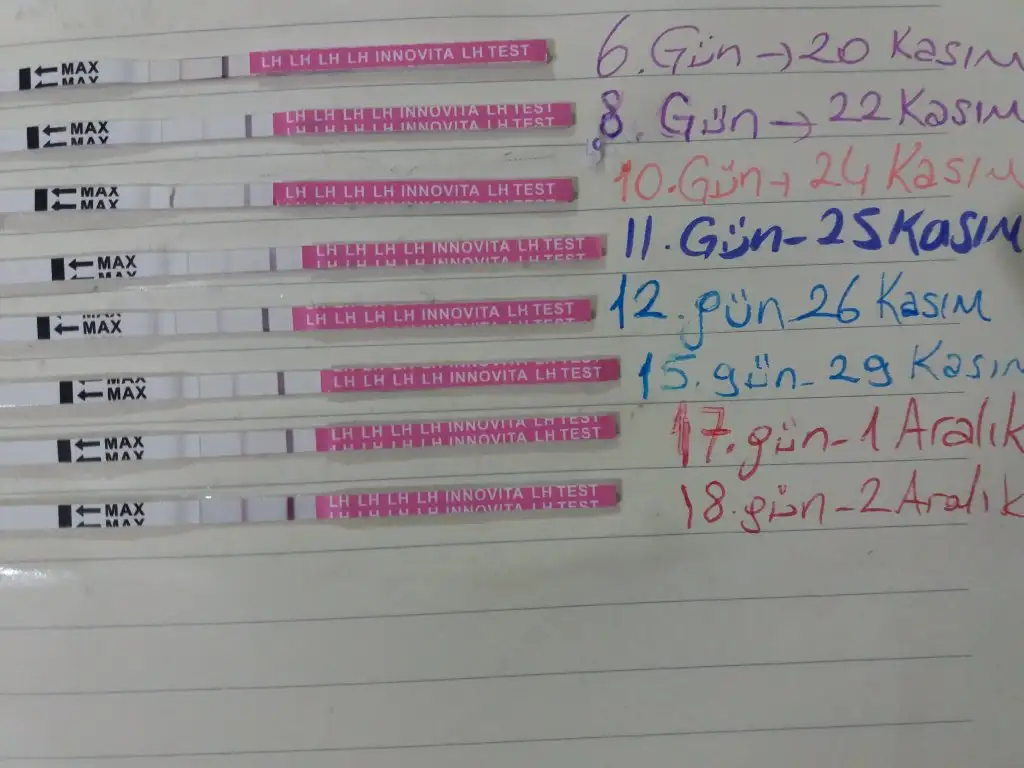 MAX LH LH LH LH INNOVITA LH TEST 6. Gün → 20 Kasım
MAX
MAX LH LH LH LH INNOVITA LH TEST 8. Gün → 22 Kasım
MAX LH LH LH LH INNOVITA LH TEST
MAX LH LH LH LH INNOVITA LH TEST 10. Gün → 24 Kasım
MAX
MAX LH LH LH LH INNOVITA LH TEST 11. Gün - 25 Kasım
MAX LH LH LH LH INNOVITA LH TEST
MAX LH LH LH LH INNOVITA LH TEST 12. gün 26 Kasım
MAX
MAX LH LH LH LH INNOVITA LH TEST 15. gün - 29 Kasım
MAX LH LH LH LH INNOVITA LH TEST 17. gün - 1 Aralık
MAX LH LH LH LH INNOVITA LH TEST
MAX LH LH LH LH INNOVITA LH TEST 18. gün - 2 Aralık
MAX LH LH LH LH INNOVITA LH TEST